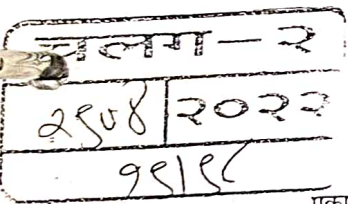 पलम – २
२९७४ | २०२२
१९/९८